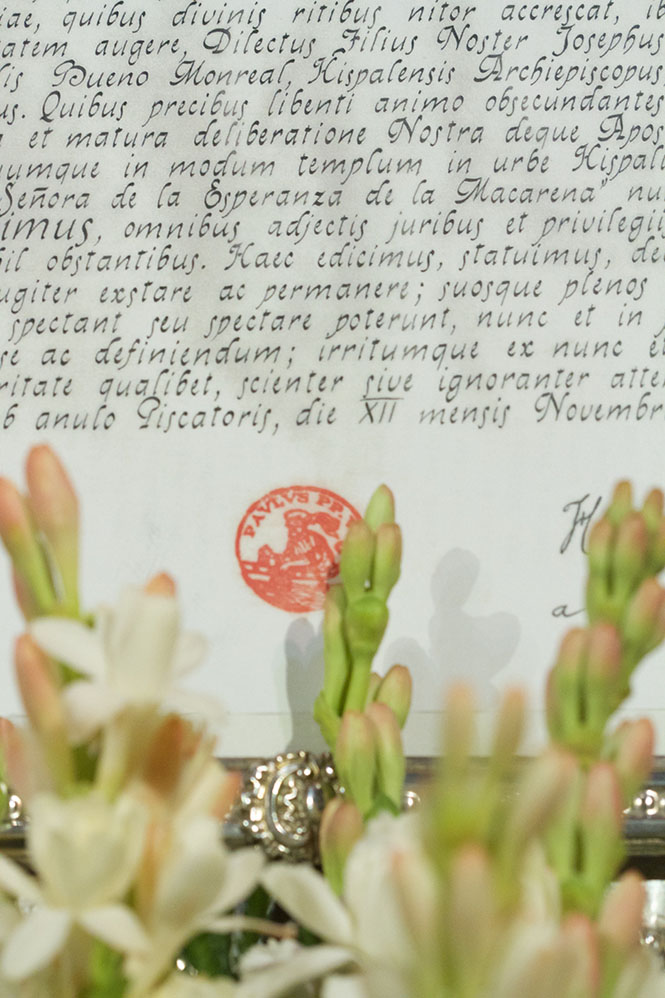 iae, quibus divinis ritibus nitor accrescat, ib
atem augere, Dilectus Filius Noster Josephus
lis Bueno Monreal, Hispalensis Archiepiscopus
us. Quibus precibus libenti animo obsecundantes
et matura deliberatione Nostra deque Apos
umque in modum templum in urbe Hispal
Señora de la Esperanza de la Macarena" nu
imus, omnibus adjectis juribus et privilegii
il obstantibus. Haec edicimus, statuimus, de
ugiter exstare ac permanere; suosque plenos
spectant seu spectare poterunt, nunc et in
se ac definiendum; irritumque ex nunc et
ritate qualibet, scienter sive ignoranter atte
b anulo Piscatoris, die XII mensis Novembr
PAVLVS PP.
H
a